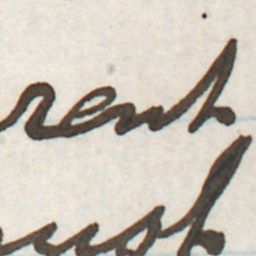 rent
ust